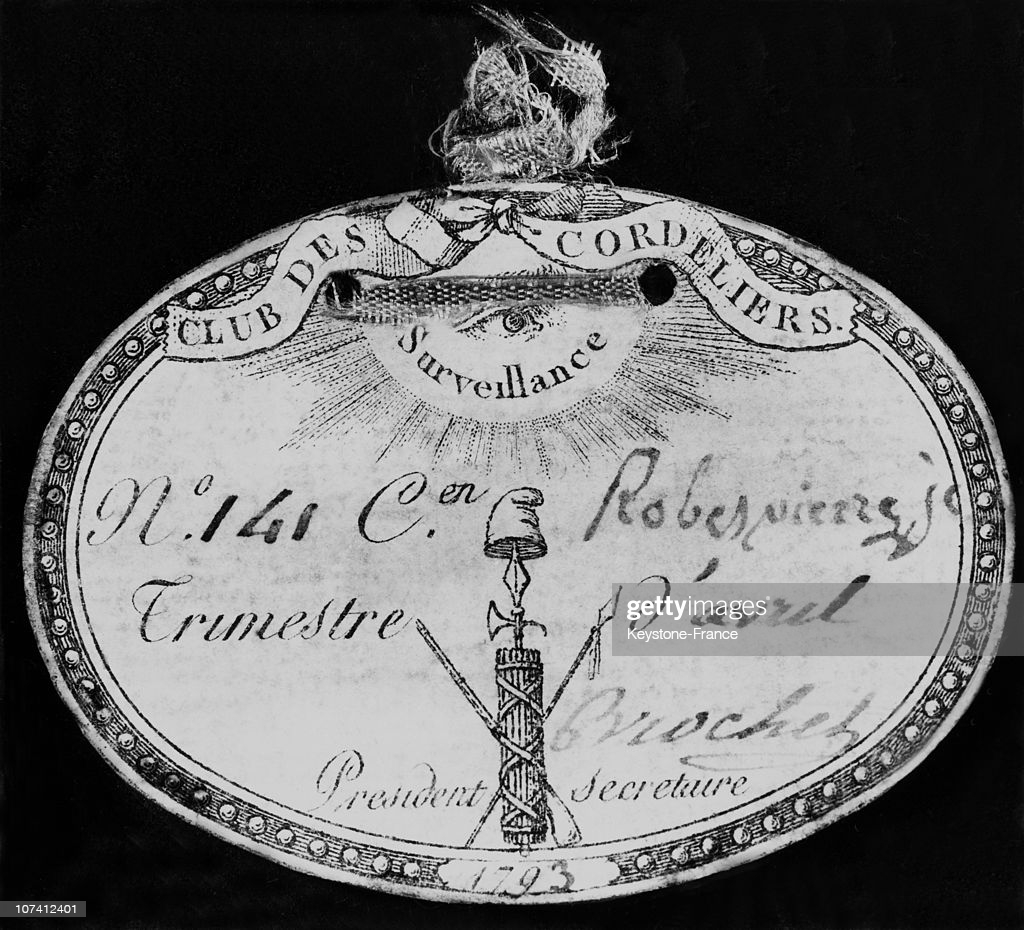 CLUB DES CORDELIERS.
Surveillance
N.º 141 C.en Robespierre je
Trimestre d'avril
Brochet
President secretaire
1793
gettyimages
Keystone-France
107412401